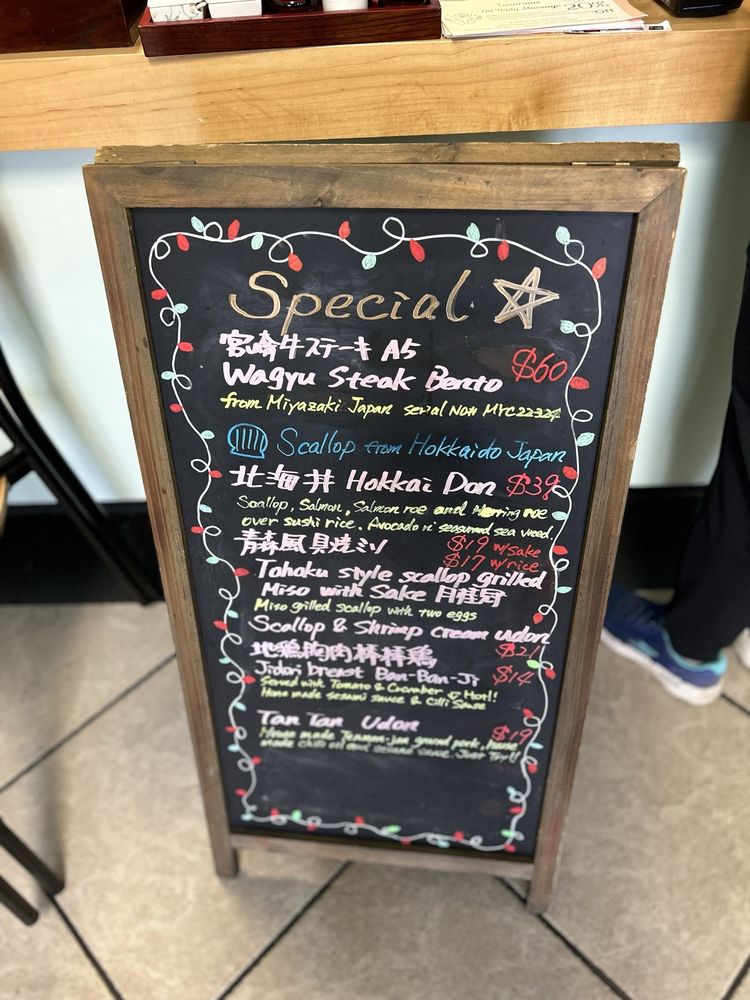 Luxurious
Oil Body Massage 20%
Off
Special
宮崎牛ステーキ A5
Wagyu Steak Bento $60
from Miyazaki Japan serial Non MYC22324
Scallop from Hokkaido Japan
北海丼 Hokkai Don $39
Scallop, Salmon, Salmon roe and Herring roe
over sushi rice. Avocado n' seasoned sea weed.
青森風貝焼ミソ $19 w/sake
$17 w/rice
Tohoku style scallop grilled
Miso with Sake 月桂冠
Miso grilled scallop with two eggs
Scallop & Shrimp cream udon
$21
地鶏胸肉棒棒鶏
Jidori breast Ban-Ban-Ji $14
Served with Tomato & Cucumber Hot!
Home made sesami sauce & Cilli Sause
Tan Tan Udon $19
House made Tenmen-jan ground pork, house
made chilli oil and sesame sauce. Just Try!!